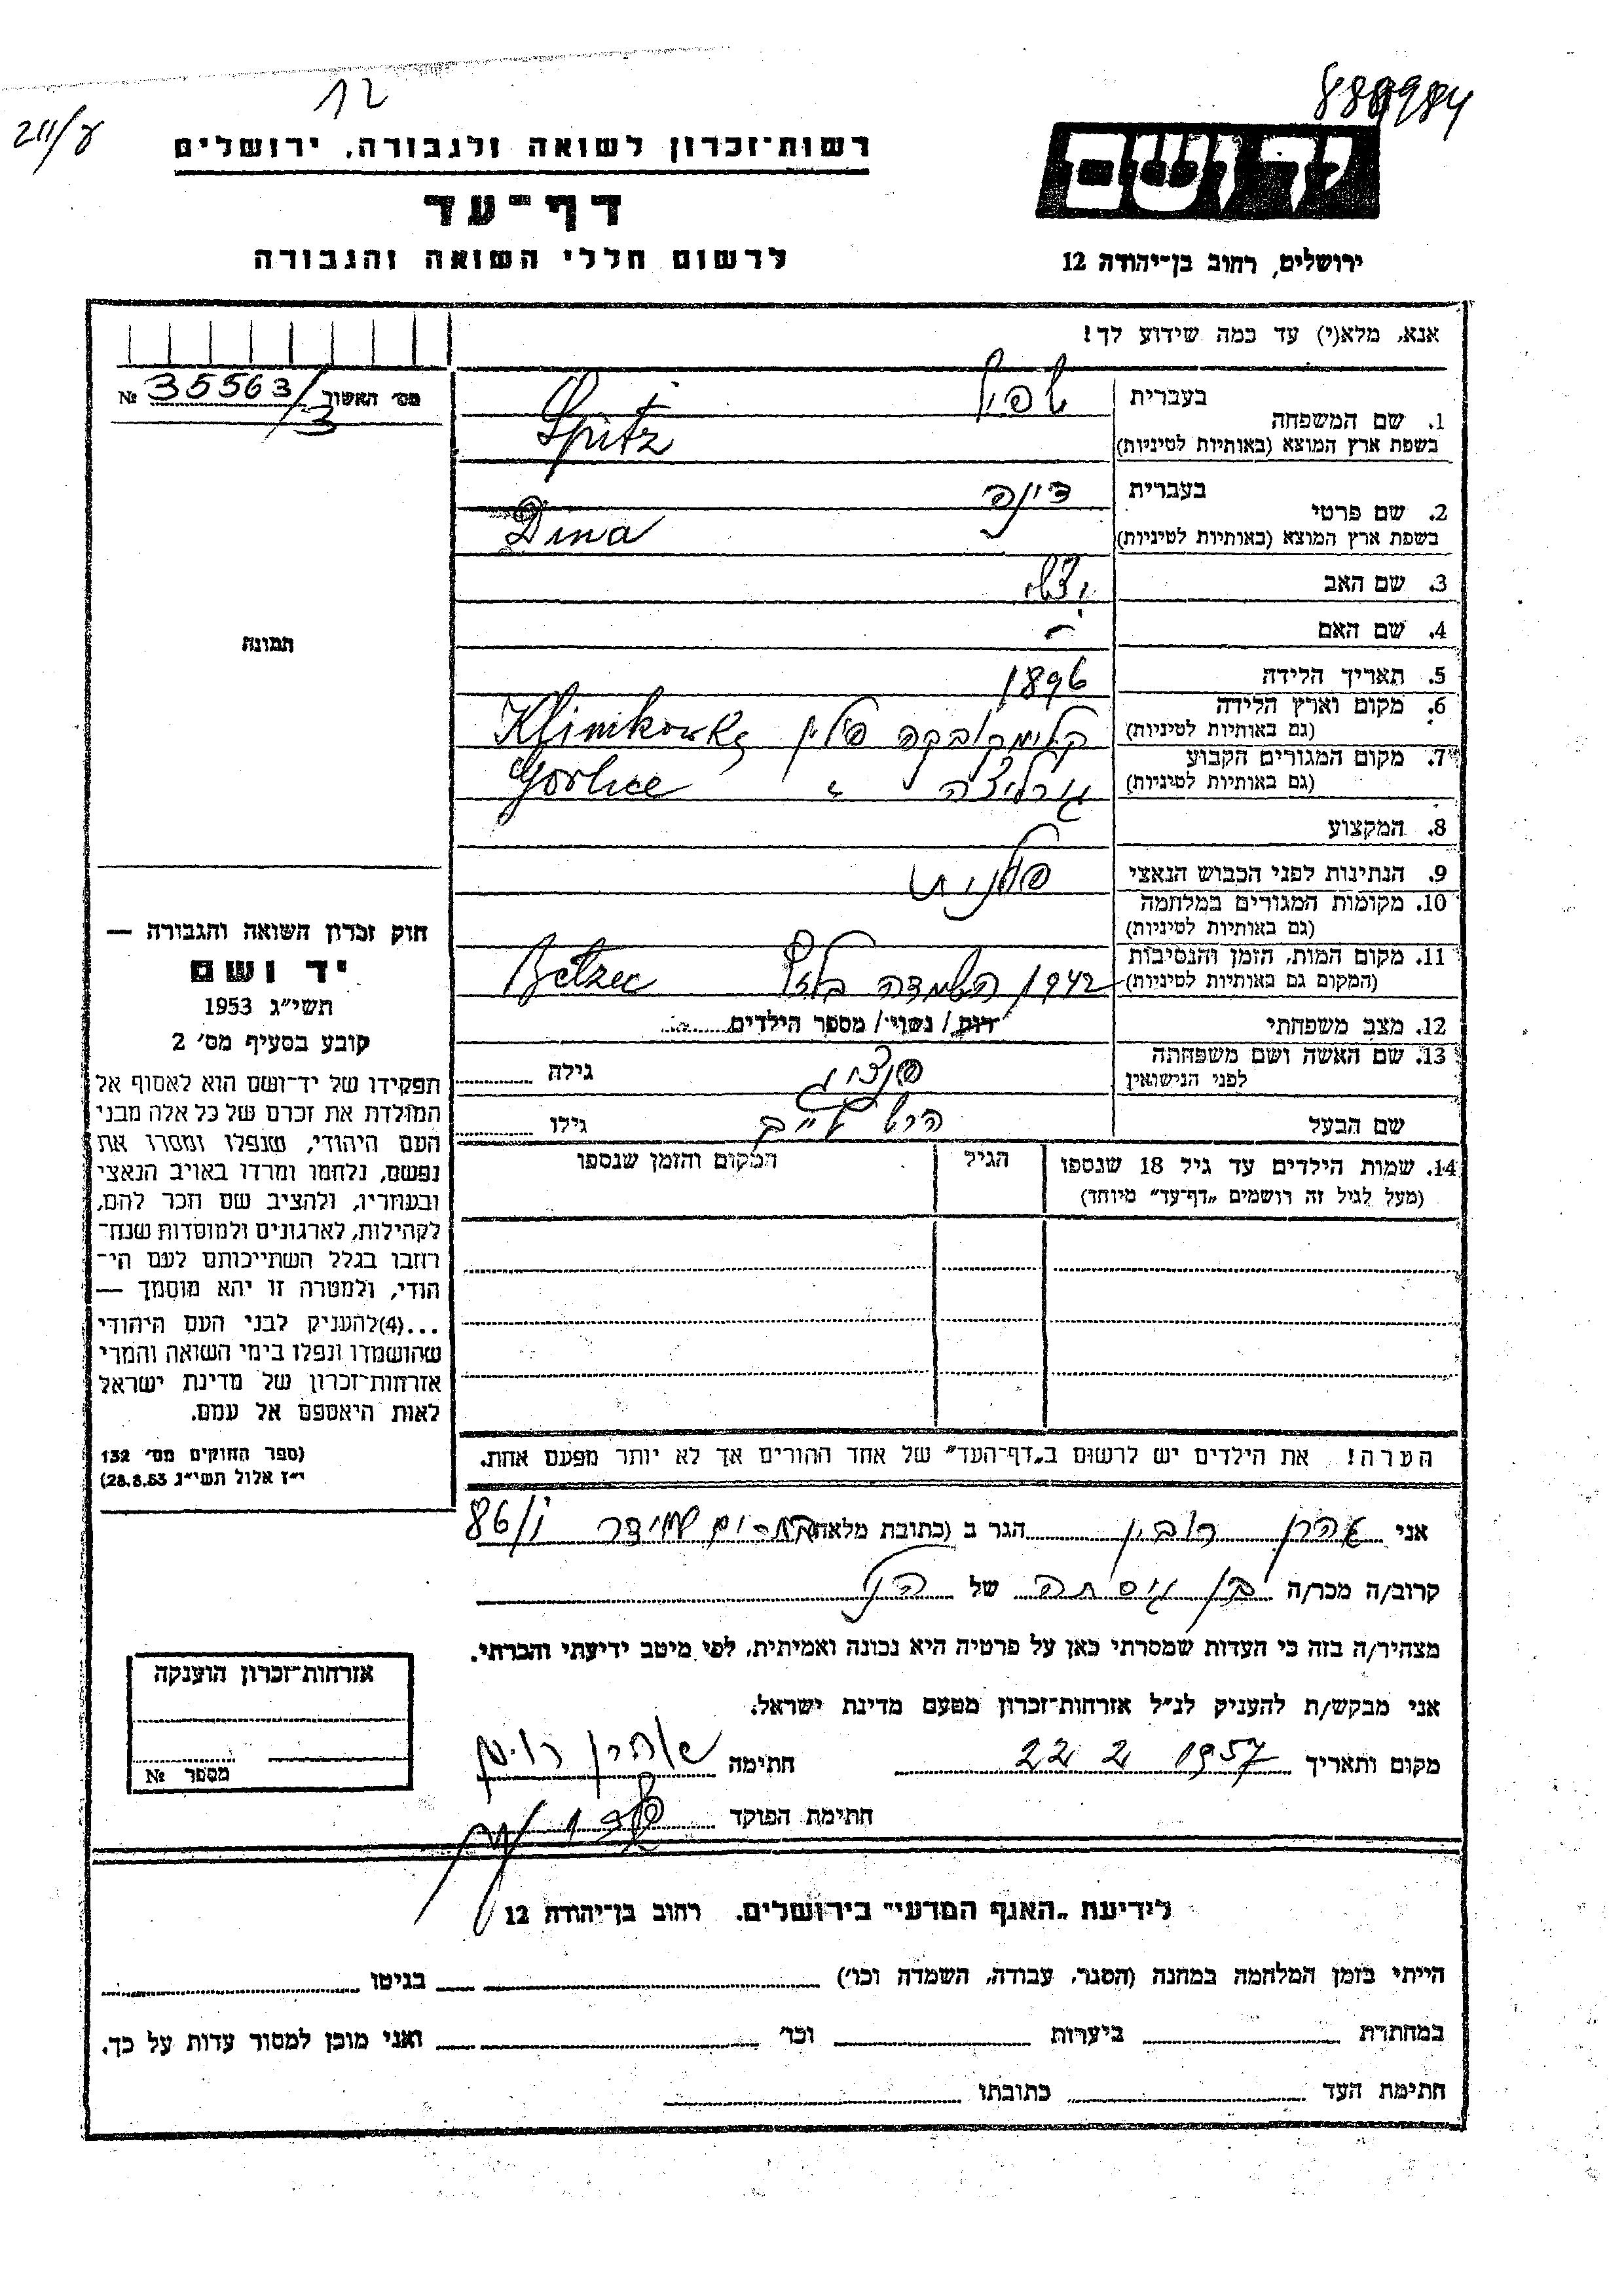 12
888984
211/ע
רשות־זכרון לשואה ולגבורה, ירושלים
דף־עד
לרשום חללי השואה והגבורה
יד ושם
ירושלים, רחוב בן־יהודה 12
אנא, מלא(י) עד כמה שידוע לך!
מס׳ האשור № 35563/3
1. שם המשפחה
בעברית שפיץ
בשפת ארץ המוצא (באותיות לטיניות) Spitz
2. שם פרטי
בעברית דינה
בשפת ארץ המוצא (באותיות לטיניות) Dina
3. שם האב
4. שם האם —
תמונה
5. תאריך הלידה 1896
6. מקום וארץ הלידה
(גם באותיות לטיניות) קלימקובקה פולין Klimkowka
7. מקום המגורים הקבוע
(גם באותיות לטיניות) גורליצה " Gorlice
8. המקצוע
9. הנתינות לפני הכבוש הנאצי פולנית
10. מקומות המגורים במלחמה
(גם באותיות לטיניות)
11. מקום המות, הזמן והנסיבות
(המקום גם באותיות לטיניות) 1942 השמדה בלזץ Belzec
12. מצב משפחתי רווק / נשוי / מספר הילדים
13. שם האשה ושם משפחתה
לפני הנישואין גילה
שם הבעל הירש לייב גילו
14. שמות הילדים עד גיל 18 שנספו
(מעל לגיל זה רושמים „דף־עד" מיוחד)
הגיל
המקום והזמן שנספו
חוק זכרון השואה והגבורה —
יד ושם
תשי״ג 1953
קובע בסעיף מס׳ 2
תפקידו של יד־ושם הוא לאסוף אל
המולדת את זכרם של כל אלה מבני
העם היהודי, שנפלו ומסרו את
נפשם, נלחמו ומרדו באויב הנאצי
ובעוזריו, ולהציב שם וזכר להם,
לקהילות, לארגונים ולמוסדות שנח־
רבו בגלל השתייכותם לעם הי־
הודי, ולמטרה זו יהא מוסמך —
...(4)להעניק לבני העם היהודי
שהושמדו ונפלו בימי השואה והמרי
אזרחות־זכרון של מדינת ישראל
לאות היאספם אל עמם.
(ספר החוקים מס׳ 132
י״ז אלול תשי״ג 28.8.53)
הערה! את הילדים יש לרשום ב„דף־העד" של אחד ההורים אך לא יותר מפעם אחת.
אני אהרן רובין הגר ב (כתובת מלאה) 86/
קרוב/ה מכר/ה בן גיסתה של הנ״ל
מצהיר/ה בזה כי העדות שמסרתי כאן על פרטיה היא נכונה ואמיתית, לפי מיטב ידיעתי והכרתי.
אני מבקש/ת להעניק לנ״ל אזרחות־זכרון מטעם מדינת ישראל.
מקום ותאריך 22 2 1957 חתימה אהרן רובין
חתימת הפוקד
אזרחות־זכרון הוענקה
מספר №
לידיעת „האגף המדעי" בירושלים. רחוב בן־יהודה 12
הייתי בזמן המלחמה במחנה (הסגר, עבודה, השמדה וכו׳) בגיטו
במחתרת ביערות וכו׳ ואני מוכן למסור עדות על כך.
חתימת העד כתובתו